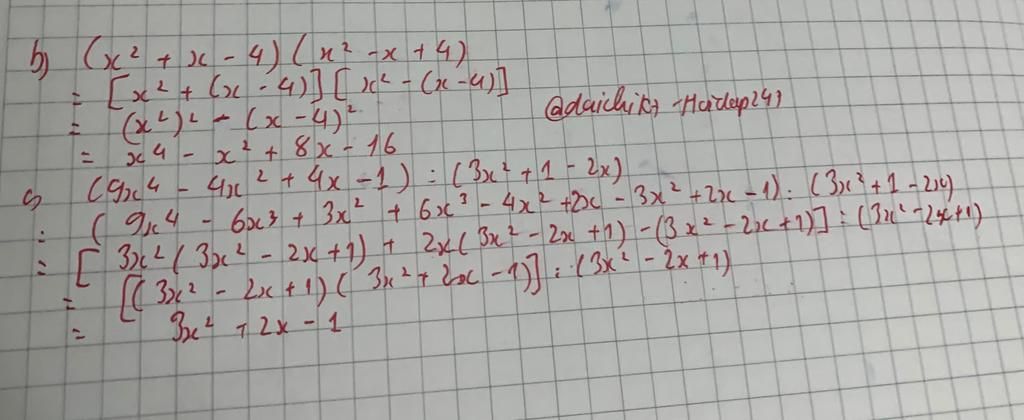 b) (x² + x - 4)(x² - x + 4)
= [x² + (x - 4)][x² - (x - 4)]
= (x²)² - (x - 4)²
= x⁴ - x² + 8x - 16
c) (9x⁴ - 4x² + 4x - 1) : (3x² + 1 - 2x)
= (9x⁴ - 6x³ + 3x² + 6x³ - 4x² + 2x - 3x² + 2x - 1) : (3x² + 1 - 2x)
= [3x²(3x² - 2x + 1) + 2x(3x² - 2x + 1) - (3x² - 2x + 1)] : (3x² - 2x + 1)
= [(3x² - 2x + 1)(3x² + 2x - 1)] : (3x² - 2x + 1)
= 3x² + 2x - 1